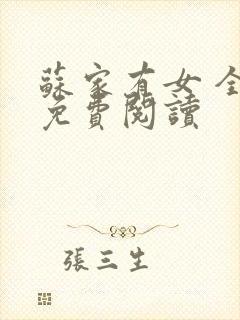 蘇家有女全
免費閱讀
張三生